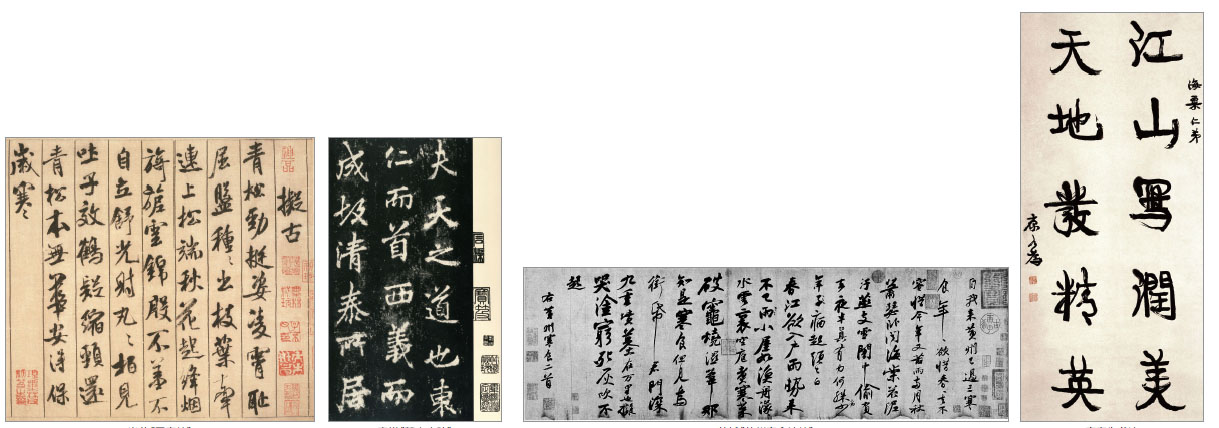 擬古
青松勁挺姿凌霄恥
屈盤種〻出枝葉牽
連上松端秋花起絳烟
旖旎雲錦殷不羞不
自立舒光射丸〻柏見
吐子效鶴疑縮頸還
青松本無華安得保
歲寒
夫天之道也東
仁而首西義而
成故清泰所居
自我來黃州已過三寒
食年〻欲惜春〻去不
容惜今年又苦雨兩月秋
蕭瑟臥聞海棠花泥
汙燕支雪闇中偷負
去夜半真有力何殊少
年子病起頭已白
春江欲入戶雨勢來
不已雨小屋如漁舟濛〻
水雲裏空庖煮寒菜
破竈燒濕葦那
知是寒食但見烏
銜帋君門深
九重墳墓在萬里也擬
哭塗窮死灰吹不
起
右黃州寒食二首
海粟仁弟
江山寫潤美
天地發精英
康有為